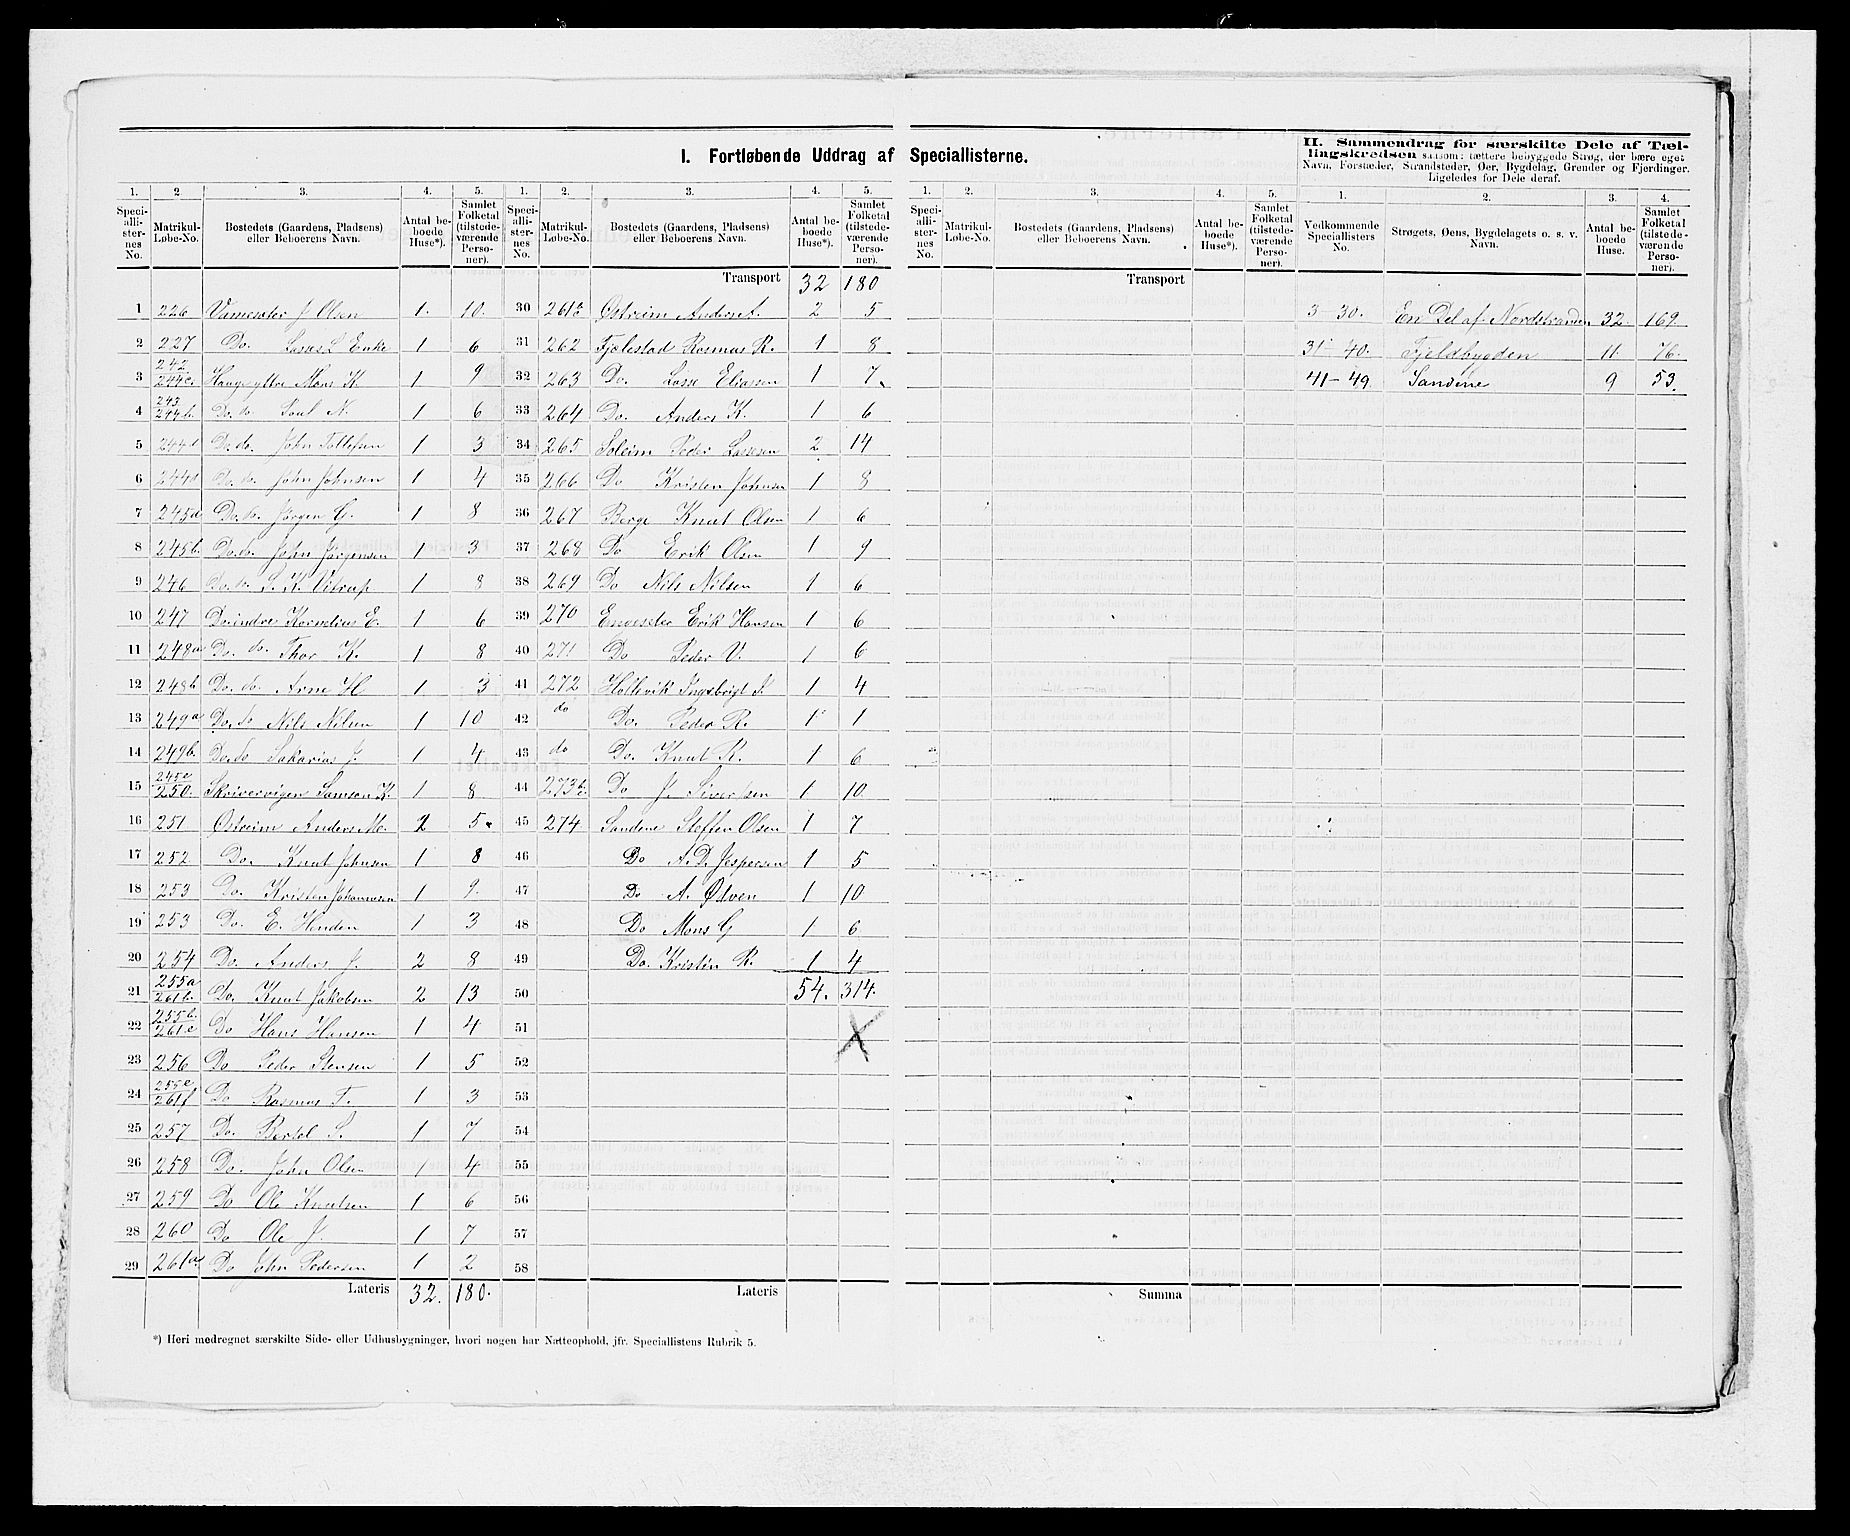 I. Fortløbende Uddrag af Speciallisterne.
II. Sammendrag for særskilte Dele af Tæl-
lingskredsen saasom: tættere bebyggede Strøg, der bære eget
Navn, Forstæder, Strandsteder, Øer, Bygdelag, Grender og Fjerdinger.
Ligeledes for Dele deraf.
1. 2 3. 4. 5. 1. 2. 3. 4. 5. 1. 2. 3. 4. 5. 1. 2. 3. 4.
Speciallisternes No. Matrikul-Løbe-No. Bostedets (Gaardens, Pladsens) eller Beboerens Navn. Antal beboede Huse*). Samlet Folketal (tilstedeværende Personer).
Speciallisternes No. Matrikul-Løbe-No. Bostedets (Gaardens, Pladsens) eller Beboerens Navn. Antal beboede Huse*). Samlet Folketal (tilstedeværende Personer).
Speciallisternes No. Matrikul-Løbe-No. Bostedets (Gaardens, Pladsens) eller Beboerens Navn. Antal beboede Huse*). Samlet Folketal (tilstedeværende Personer).
Vedkommende Speciallisters No. Strøgets, Øens, Bygdelagets o. s. v. Navn. Antal beboede Huse. Samlet Folketal (tilstedeværende Personer).
1 226 J Olsen 1. 10.
2 227 Do. Lasse L Enke 1 6
3 242 244c. Hauge yttre Mons K. 1 9
4 243 244b. Do. do. Poul N. 1 6
5 244 Do. do. John Tollefsen 1 3
6 244d Do. do. John Johnsen 1 4
7 245a Do. do. Jörgen G. 1 8
8 245b. Do. do. John Jörgensen 1 3
9 246 Do. do. K. 1 8
10 247 Do. indre Kornelius E. 1 6
11 248a Do. do. Thor K. 1 8
12 248b Do. do. Arne H 1 3
13 249a Do. do Nils Nilsen 1 10
14 249b. Do. do Sakarias J. 1 4
15 245c 250. Skrivervigen Samson K. 1 8
16 251 Østreim Anders M. 2 5
17 252 Do. Knut Johnsen 1 8
18 253 Do. Kristen Johannesen 1 9.
19 253 Do. E. Henden 1 3
20 254 Do. Anders J. 2 8
21 255a 261b. Do. Knut Jakobsen 2 13
22 255b. 261c Do Hans Hansen 1 4
23 256 Do Peder Stensen 1 5
24 255c 261f Do Rasmus T. 1 3
25 257 Do. Bertel S. 1 7
26 258 Do. John Olsen 1 4
27 259 Do Ole Knutsen 1 6
28 260 Do Ole J. 1 7
29 261a Do John Pedersen 1 2
Lateris 32. 180.
Transport 32 180
30 261 Østreim Anders A. 2 5
31 262 Fjølestad Rasmus R. 1 8
32 263 Do. Lasse Eliassen 1 7
33 264 Do. Anders K. 1 6
34 265 Soleim Peder Lassesen 2 14
35 266 Do Kristen Johnsen 1 8
36 267 Berge Knut Olsen 1 6
37 268 Do Erik Olsen 1 9
38 269 Do Nils Nilsen 1 6
39 270 Erik Hansen 1 6
40 271 Do Peder V. 1 6
41 272 Hollevik Ingebrigt 1 4
42 do Do. Peder R. 1 1
43 do Do. Knut R. 1 6
44 273 Do J. Sivertsen 1 10
45 274 Sandene Steffen Olsen 1 7
46 Do A. D. Jespersen 1 5
47 Do A. Ødven 1 10
48 Do Mons G 1 6
49 Do. Kristin R. 1 4
50 54. 314.
51 X
52
53
54
55
56
57
58
Lateris
Transport
Summa
3 30. En Del af Nordstranden 32. 169.
31 40. Fjeldbygden 11. 76.
41-49 Sandene 9 53.
*) Heri medregnet særskilte Side- eller Udhusbygninger, hvori nogen har Natteophold, jfr. Speciallistens Rubrik 5.